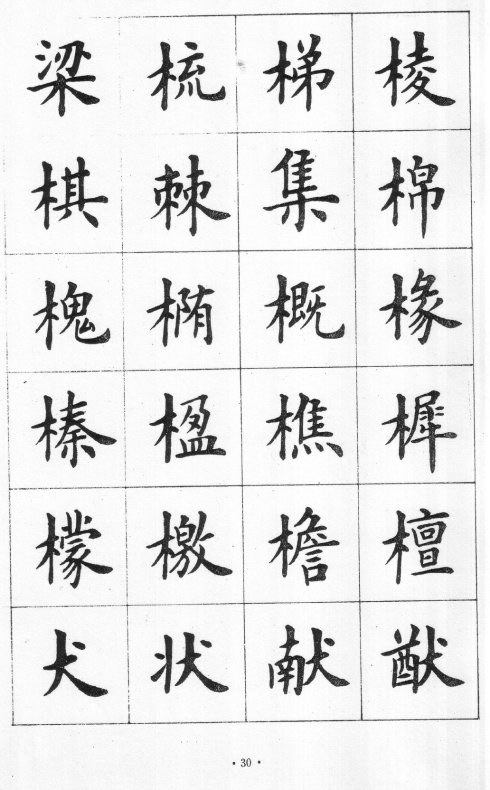 梁梳梯棱
棋棘集棉
槐椭概椽
榛楹樵樨
檬檄檐檀
犬状献猷
·30·